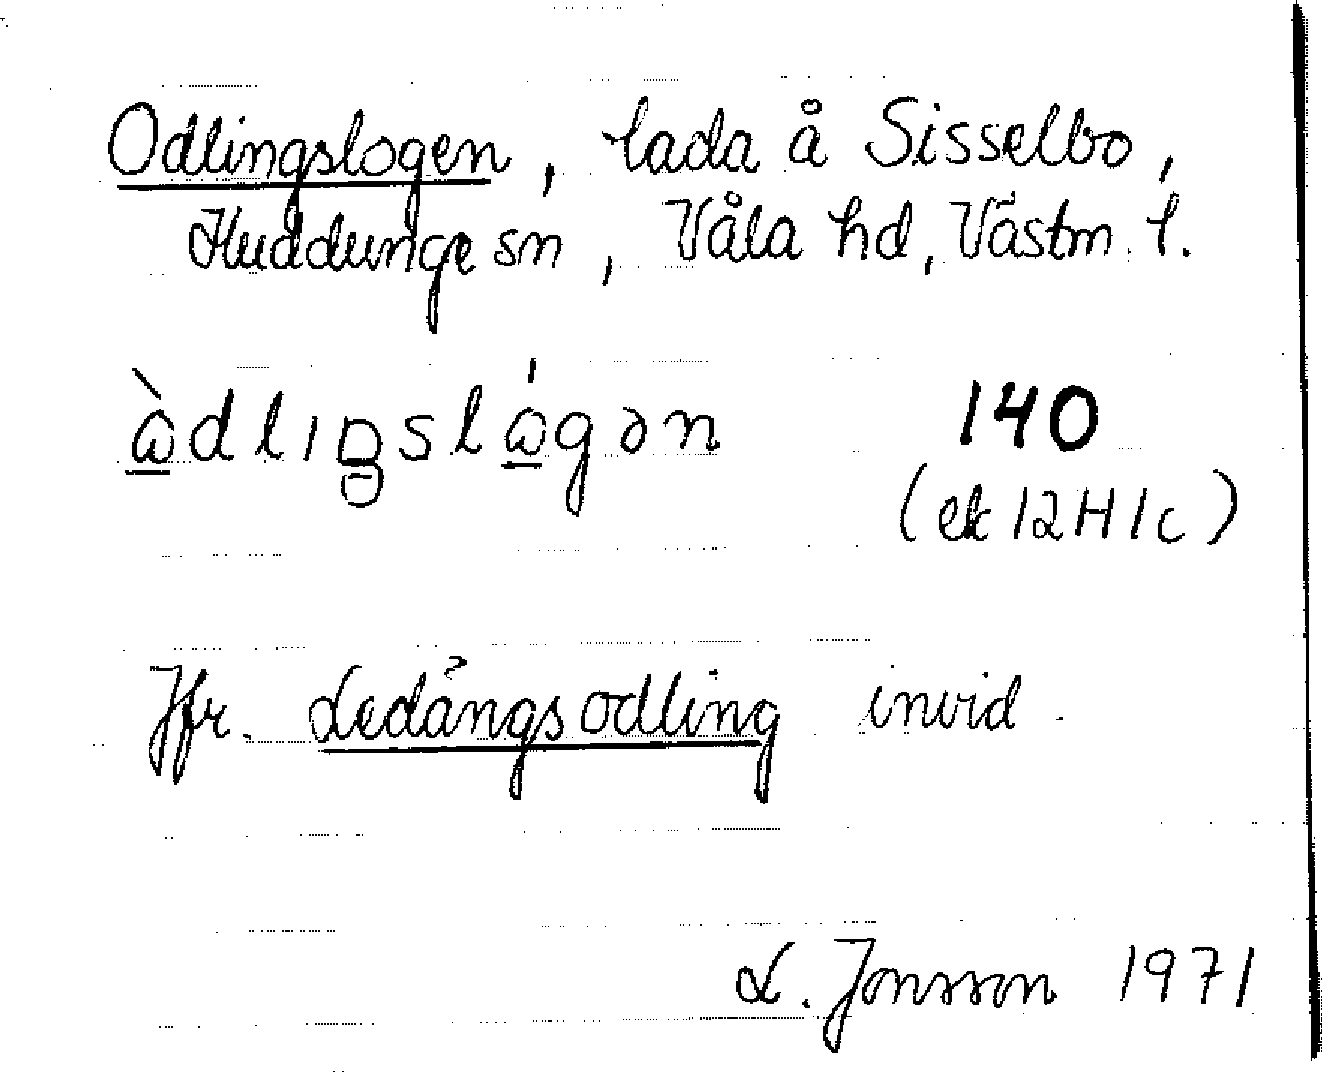 Odlingslogen, lada å Sisselbo,
Huddunge sn, Våla hd, Västm. l.
ὰdlıŋslágən 140
(ek 12H1c)
Jfr. Ledängsodling invid
L. Jonsson 1971